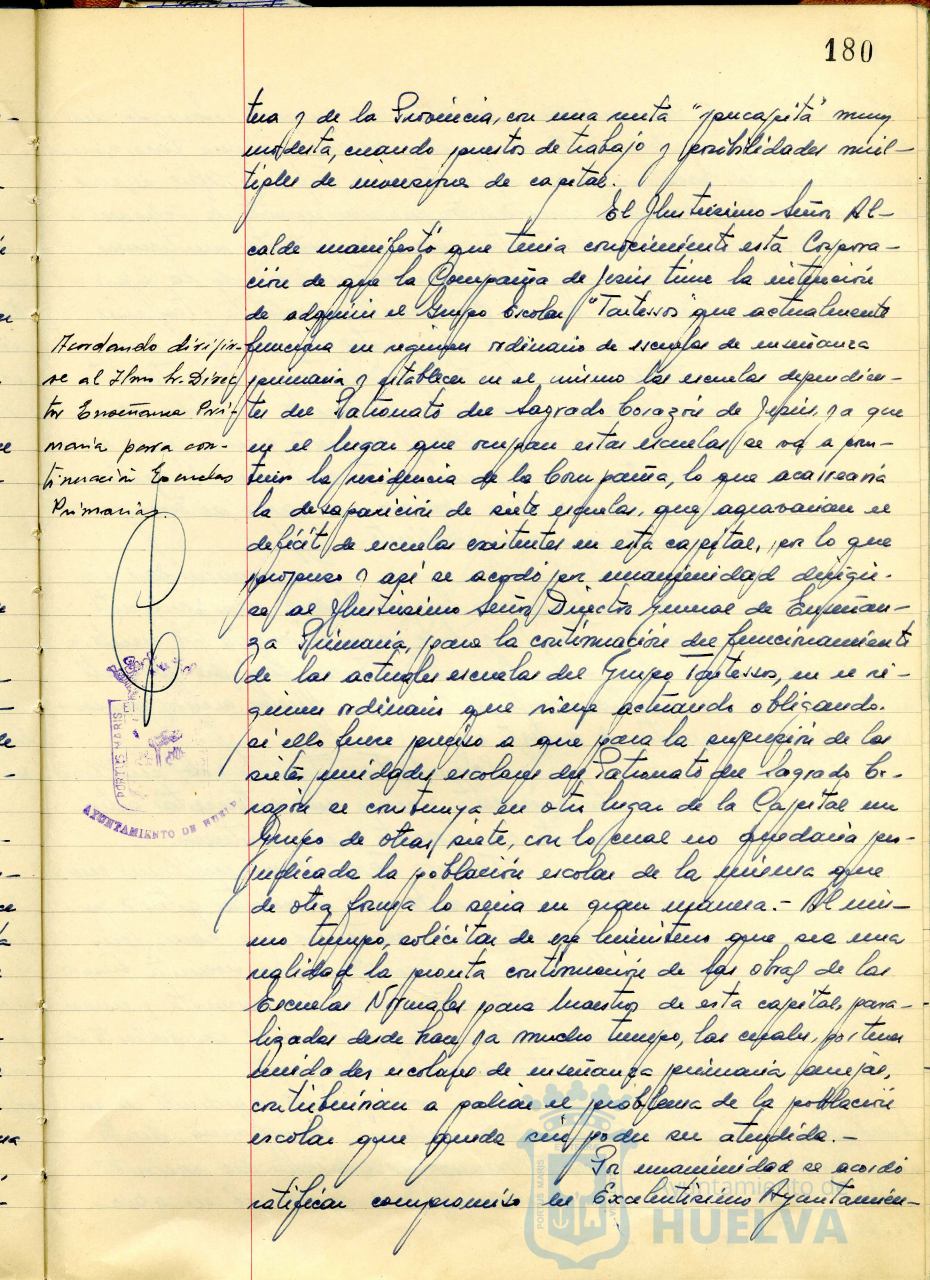 180
tura y de la Provincia, con una renta "per capita" muy
modesta, creando puestos de trabajo y posibilidades múl-
tiples de inversiones de capital.
El Ilustrísimo Señor Al-
calde manifestó que tenia conocimiento esta Corpora-
ción de que la Compañia de Jesús tiene la intención
de adquirir el Grupo Escolar "Tartessos" que actualmente
funciona en regimen ordinario de escuelas de enseñanza
primaria y establecer en el mismo las escuelas dependien-
tes del Patronato del Sagrado Corazón de Jesús, ya que
en el lugar que ocupan estas escuelas se va a cons-
truir la residencia de la Compañia, lo que acarrearia
la desaparición de siete escuelas, que agravarian el
deficit de escuelas existentes en esta capital, por lo que
propuso y así se acordó por unanimidad dirigir-
se al Ilustrisimo Señor Director General de Enseñan-
za Primaria, para la continuación del funcionamiento
de las actuales escuelas del Grupo Tartessos, en el ré-
gimen ordinario que viene actuando obligando,
si ello fuere preciso a que para la supresión de las
siete unidades escolares del Patronato del Sagrado Co-
razón se construya en otro lugar de la Capital un
Grupo de otras siete, con lo cual no quedaria per-
judicada la población escolar de la misma que
de otra forma lo seria en gran manera.- Al mis-
mo tiempo, solicitar de ese Ministerio que sea una
realidad la pronta continuación de las obras de las
Escuelas Normales para Maestros de esta capital, para-
lizadas desde hace ya mucho tiempo, las cuales, por tener
unidades escolares de enseñanza primaria anejas,
contribuirian a paliar el problema de la población
escolar que queda sin poder ser atendida.-
Por unanimidad se acordó
ratificar compromiso en Excelentísimo Ayuntamien-
Acordando dirigir-
se al Ilmo Sr. Direc
tor Enseñanza Pri-
maria para con-
tinuación Escuelas
Primarias.
PORTUS MARIS
AYUNTAMIENTO DE HUELVA
PORTUS MARIS
Ayuntamiento de
HUELVA